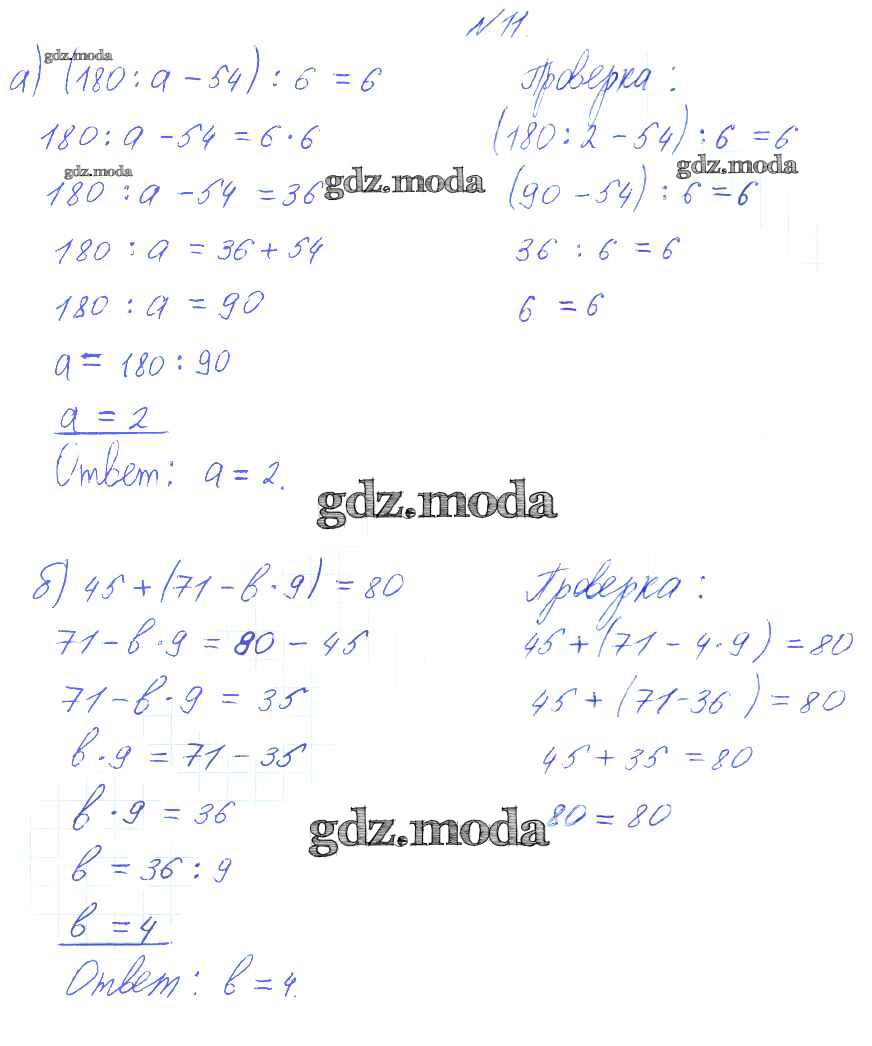 №11.
gdz.moda
а) (180 : а - 54) : 6 = 6
180 : а - 54 = 6 · 6
gdz.moda
180 : а - 54 = 36
gdz.moda
180 : а = 36 + 54
180 : а = 90
а = 180 : 90
а = 2
Ответ: а = 2.
Проверка:
(180 : 2 - 54) : 6 = 6
gdz.moda
(90 - 54) : 6 = 6
36 : 6 = 6
6 = 6
gdz.moda
б) 45 + (71 - в · 9) = 80
71 - в · 9 = 80 - 45
71 - в · 9 = 35
в · 9 = 71 - 35
в · 9 = 36
gdz.moda
в = 36 : 9
в = 4
Ответ: в = 4.
Проверка:
45 + (71 - 4 · 9) = 80
45 + (71 - 36) = 80
45 + 35 = 80
80 = 80